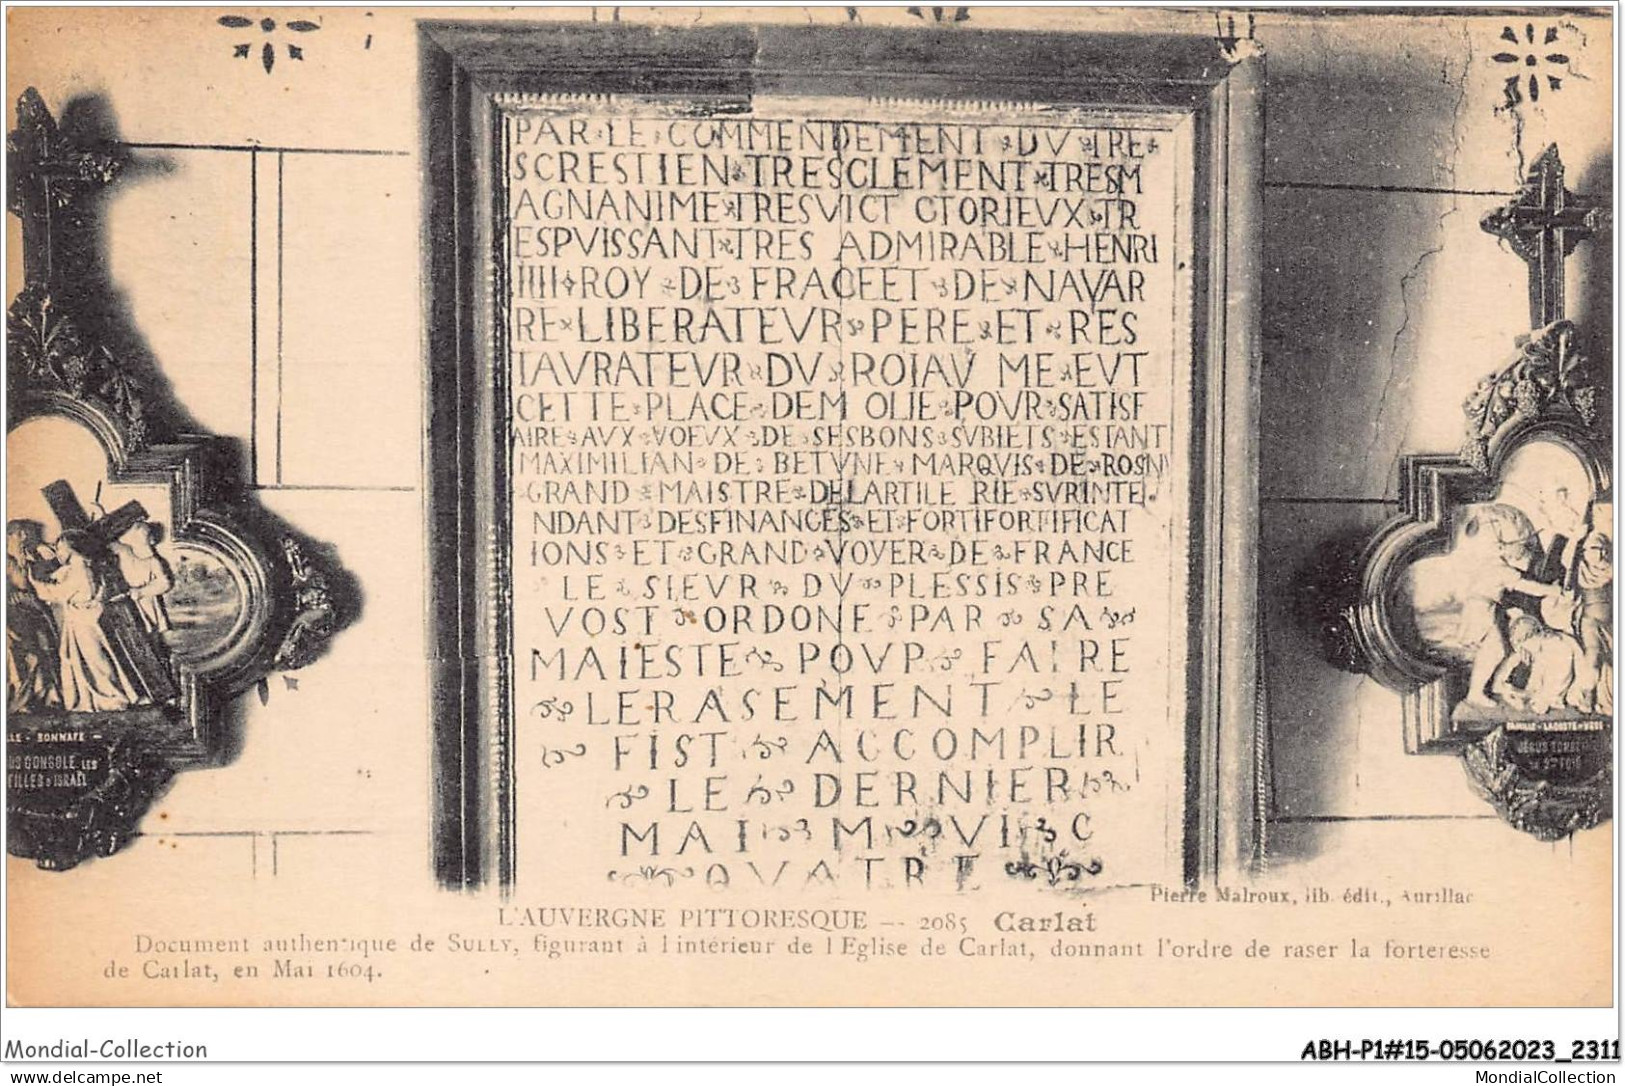 PAR LE COMMENDEMENT DV TRE
SCRESTIEN TRESCLEMENT TRESM
AGNANIME TRESVICT CTORIEVX TR
ESPVISSANT TRES ADMIRABLE HENRI
IIII ROY DE FRACEET DE NAVAR
RE LIBERATEVR PERE ET RES
TAVRATEVR DV ROIAV ME EVT
CETTE PLACE DEM OLIE POVR SATISF
AIRE AVX VOEVX DE SESBONS SVBIETS ESTANT
MAXIMILIAN DE BETVNE MARQVIS DE ROSNI
GRAND MAISTRE DELARTILE RIE SVRINTE
NDANT DESFINANCES ET FORTIFORTIFICAT
IONS ET GRAND VOYER DE FRANCE
LE SIEVR DV PLESSIS PRE
VOST ORDONE PAR SA
MAIESTE POVR FAIRE
LERASEMENT LE
FIST ACCOMPLIR
LE DERNIER
MAI M VI C
QVATRE
LLE - BONNAFE -
US CONSOLE LES
FILLES D'ISRAËL
FAMILLE - LACOSTE - VERS
JÉSUS TOMBE
Pierre Malroux, lib. édit., Aurillac
L'AUVERGNE PITTORESQUE -- 2085 Carlat
Document authentique de SULLY, figurant à l'intérieur de l'Eglise de Carlat, donnant l'ordre de raser la forteresse
de Carlat, en Mai 1604.
Mondial-Collection
ABH-P1#15-05062023_2311
www.delcampe.net
MondialCollection